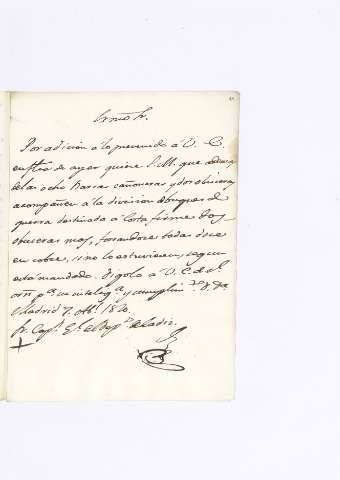 Exmo Sr.
Por adicion á lo prevenido á V. E.
en de ayer quiere S. M. que ademas
de las ocho Barcas cañoneras y dos obuceras
acompañen á la division de buques de
guerra destinada á Costa firme dos
obuceras mas, forrandose todas doce
en cobre, si no lo estuvieren, segun
está mandado. Digolo á V. E. de Rl.
orn pa. su inteliga. y cumplimto. D. gue
Madrid 7 1820.
Sr. Capn. Gl. del Depto. de Cadiz.